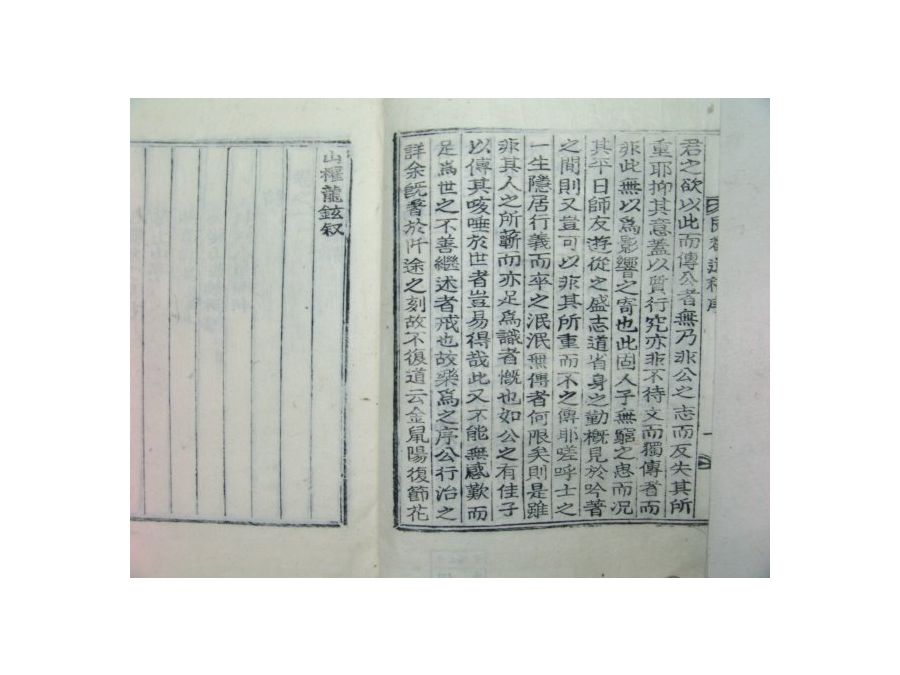 君之欲以此而傳公者無乃非公之志而反失其所
重耶抑其意蓋以質行究亦非不待文而獨傳者而
非此無以爲影響之寄也此固人子無窮之思而況
其平日師友遊從之盛志道省身之勤概見於吟著
之間則又豈可以非其所重而不之俾耶嗟呼士之
一生隱居行義而卒之泯泯無傳者何限矣則是雖
非其人之所蘄而亦足爲識者慨也如公之有佳子
以傳其咳唾於世者豈易得哉此又不能無感歎而
足爲世之不善繼述者戒也故樂爲之序公行治之
詳余旣著於阡途之刻故不復道云金鼠陽復節花
山權龍鉉叙